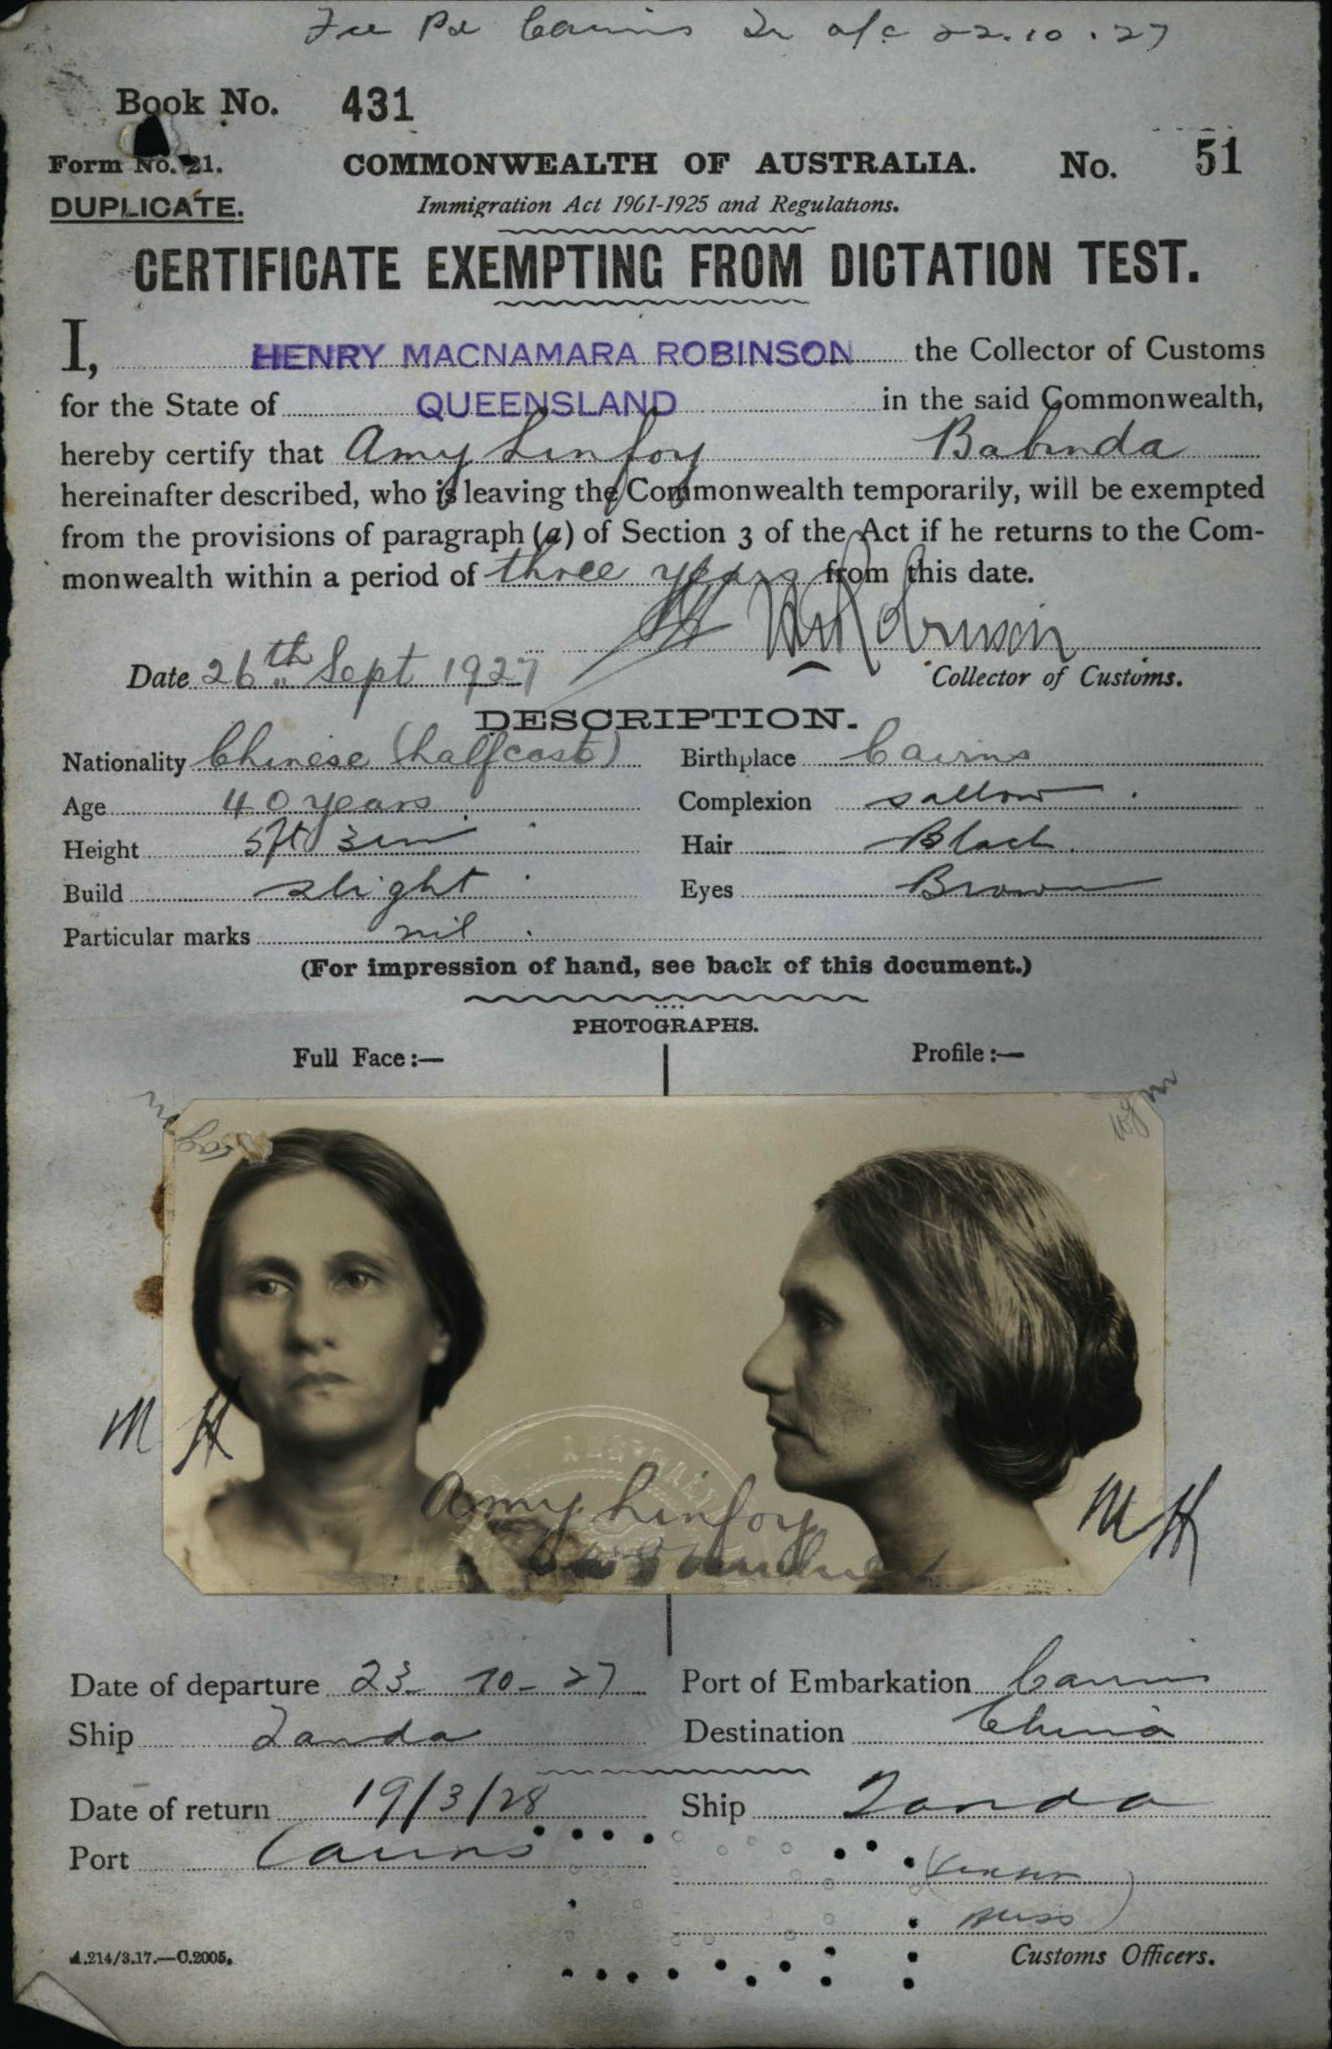 Fee Pd Cairns Dr a/c 22.10.27
Book No. 431
Form No. 21. COMMONWEALTH OF AUSTRALIA. No. 51
DUPLICATE. Immigration Act 1901-1925 and Regulations.
CERTIFICATE EXEMPTING FROM DICTATION TEST.
I, HENRY MACNAMARA ROBINSON the Collector of Customs
for the State of QUEENSLAND in the said Commonwealth,
hereby certify that Amy Linfoy Babinda
hereinafter described, who is leaving the Commonwealth temporarily, will be exempted
from the provisions of paragraph (a) of Section 3 of the Act if he returns to the Com-
monwealth within a period of three years from this date.
H McRobinson
Date 26th Sept 1927 Collector of Customs.
DESCRIPTION.
Nationality Chinese (halfcast) Birthplace Cairns
Age 40 years Complexion sallow
Height 5ft 3in Hair Black
Build slight Eyes Brown
Particular marks nil
(For impression of hand, see back of this document.)
PHOTOGRAPHS.
Full Face:— Profile:—
M H
Amy Linfoy
M H
Date of departure 23-10-27 Port of Embarkation Cairns
Ship Tanda Destination China
Date of return 19/3/28 Ship Tanda
Port Cairns
A.214/3.17.—C.2005. Customs Officers.